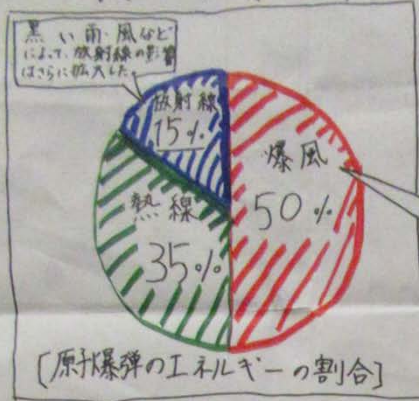 黒い雨・風など
によって、放射線の影響
はさらに拡大した。
放射線
15%
爆風
50%
熱線
35%
[原子爆弾のエネルギーの割合]